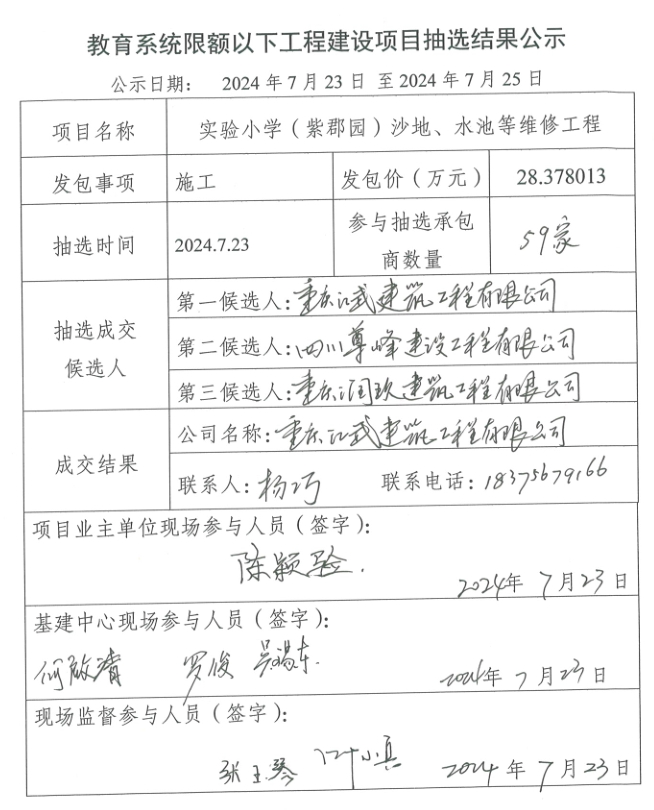 教育系统限额以下工程建设项目抽选结果公示
公示日期： 2024年7月23日 至2024年7月25日
项目名称 实验小学（紫郡园）沙地、水池等维修工程
发包事项 施工 发包价（万元） 28.378013
抽选时间 2024.7.23 参与抽选承包商数量 59家
抽选成交候选人
第一候选人:重庆江武建筑工程有限公司
第二候选人:四川尊峰建设工程有限公司
第三候选人:重庆润玖建筑工程有限公司
成交结果
公司名称:重庆江武建筑工程有限公司
联系人:杨巧 联系电话:18375679166
项目业主单位现场参与人员(签字):
陈颖
2024年7月23日
基建中心现场参与人员(签字):
罗俊
2024年7月23日
现场监督参与人员(签字):
张玉琴 叶小真
2024年7月23日